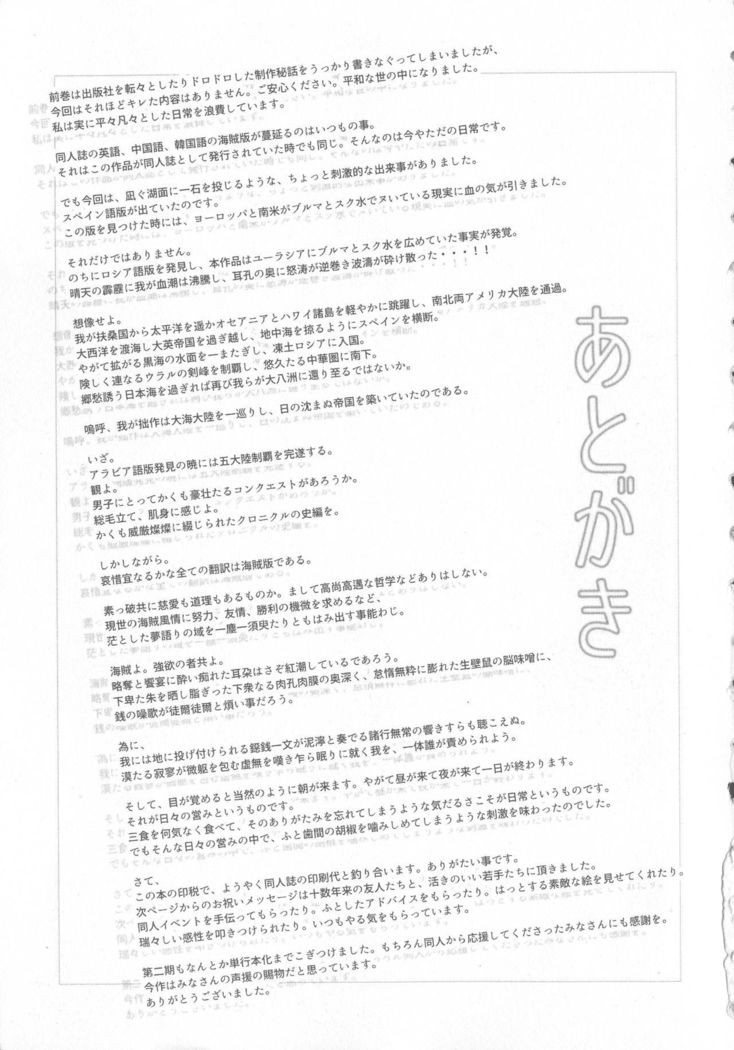 あとがき
前巻は出版社を転々としたりドロドロした制作秘話をうっかり書きなぐってしまいましたが、
今回はそれほどキレた内容はありません。ご安心ください。平和な世の中になりました。
私は実に平々凡々とした日常を浪費しています。
同人誌の英語、中国語、韓国語の海賊版が蔓延るのはいつもの事。
それはこの作品が同人誌として発行されていた時でも同じ。そんなのは今やただの日常です。
でも今回は、凪ぐ湖面に一石を投じるような、ちょっと刺激的な出来事がありました。
スペイン語版が出ていたのです。
この版を見つけた時には、ヨーロッパと南米がブルマとスク水でヌいている現実に血の気が引きました。
それだけではありません。
のちにロシア語版を発見し、本作品はユーラシアにブルマとスク水を広めていた事実が発覚。
晴天の霹靂に我が血潮は沸騰し、耳孔の奥に怒涛が逆巻き波濤が砕け散った・・・！！
想像せよ。
我が扶桑国から太平洋を遥かオセアニアとハワイ諸島を軽やかに跳躍し、南北両アメリカ大陸を通過。
大西洋を渡海し大英帝国を過ぎ越し、地中海を掠るようにスペインを横断。
やがて拡がる黒海の水面を一またぎし、凍土ロシアに入国。
険しく連なるウラルの剣峰を制覇し、悠久たる中華圏に南下。
郷愁誘う日本海を過ぎれば再び我らが大八洲に還り至るではないか。
嗚呼、我が拙作は大海大陸を一巡りし、日の沈まぬ帝国を築いていたのである。
いざ。
アラビア語版発見の暁には五大陸制覇を完遂する。
観よ。
男子にとってかくも豪壮たるコンクエストがあろうか。
総毛立て、肌身に感じよ。
かくも威厳燦燦に綴じられたクロニクルの史編を。
しかしながら。
哀惜宜なるかな全ての翻訳は海賊版である。
素っ破共に慈愛も道理もあるものか。まして高尚高邁な哲学などありはしない。
現世の海賊風情に努力、友情、勝利の機微を求めるなど、
茫とした夢語りの域を一塵一須臾たりともはみ出す事能わじ。
海賊よ。強欲の者共よ。
略奪と饗宴に酔い痴れた耳朶はさぞ紅潮しているであろう。
下卑た朱を晒し脂ぎった下衆なる肉孔肉膜の奥深く、怠惰無粋に膨れた生壁鼠の脳味噌に、
銭の噪歌が徒爾徒爾と煩い事だろう。
為に、
我には地に投げ付けられる鐚銭一文が泥濘と奏でる諸行無常の響きすらも聴こえぬ。
漠たる寂寥が微躯を包む虚無を嘆き乍ら眠りに就く我を、一体誰が責められよう。
そして、目が覚めると当然のように朝が来ます。やがて昼が来て夜が来て一日が終わります。
それが日々の営みというものです。
三食を何気なく食べて、そのありがたみを忘れてしまうような気だるさこそが日常というものです。
でもそんな日々の営みの中で、ふと歯間の胡椒を噛みしめてしまうような刺激を味わったのでした。
さて、
この本の印税で、ようやく同人誌の印刷代と釣り合います。ありがたい事です。
次ページからのお祝いメッセージは十数年来の友人たちと、活きのいい若手たちに頂きました。
同人イベントを手伝ってもらったり。ふとしたアドバイスをもらったり。はっとする素敵な絵を見せてくれたり。
瑞々しい感性を叩きつけられたり。いつもやる気をもらっています。
第二期もなんとか単行本化までこぎつけました。もちろん同人から応援してくださったみなさんにも感謝を。
今作はみなさんの声援の賜物だと思っています。
ありがとうございました。